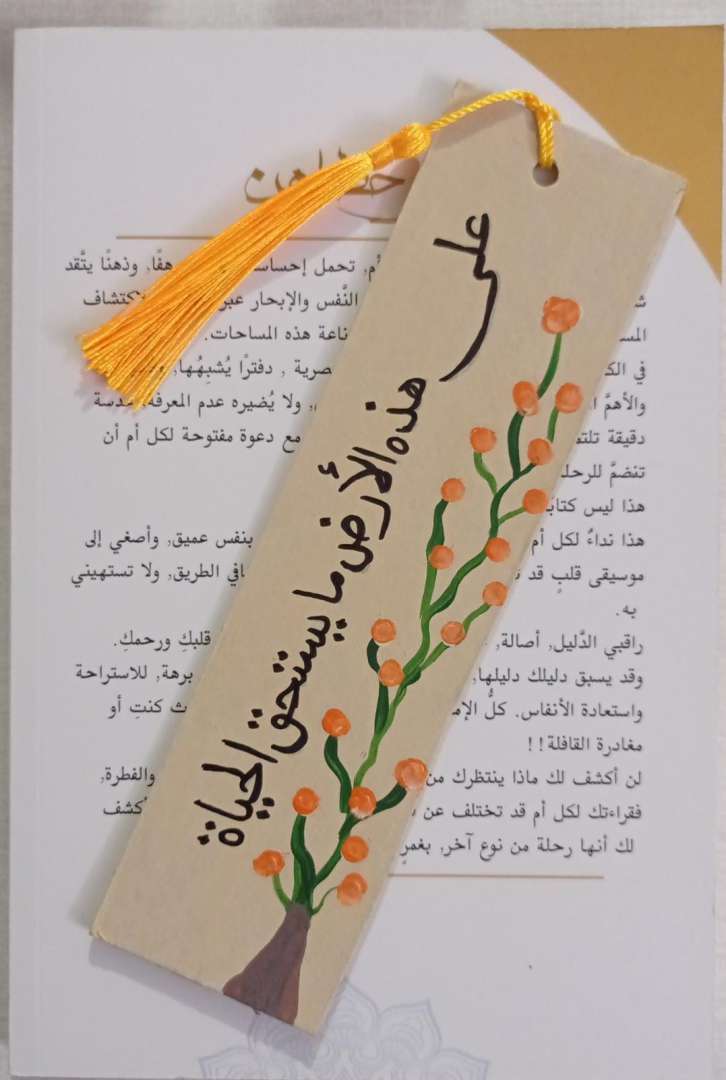 على
هذه الأرض ما يستحق الحياة
أم, تحمل هفًا, وذهنًا يتَّقد
النَّفس والإبحار عبر لاكتشاف
هذه المساحات.
في دفترًا يُشبِهُها,
والأهمَّ ولا يُضيره عدم المعرفة,
دقيقة مع دعوة مفتوحة لكل أم أن
تنضمَّ
هذا ليس
هذا نداءٌ لكل أم بنفس عميق, وأصغي إلى
موسيقى قلبٍ قد الطريق, ولا تستهيني
به.
راقبي الدَّليل, أصالة, قلبكِ ورحمكِ.
وقد يسبق دليلك دليلها, برهة, للاستراحة
واستعادة الأنفاس. كلُّ كنتِ أو
مغادرة القافلة!!
لن أكشف لك ماذا ينتظرك من والفطرة,
فقراءتك لكل أم قد تختلف عن أكشف
لك أنها رحلة من نوع آخر,